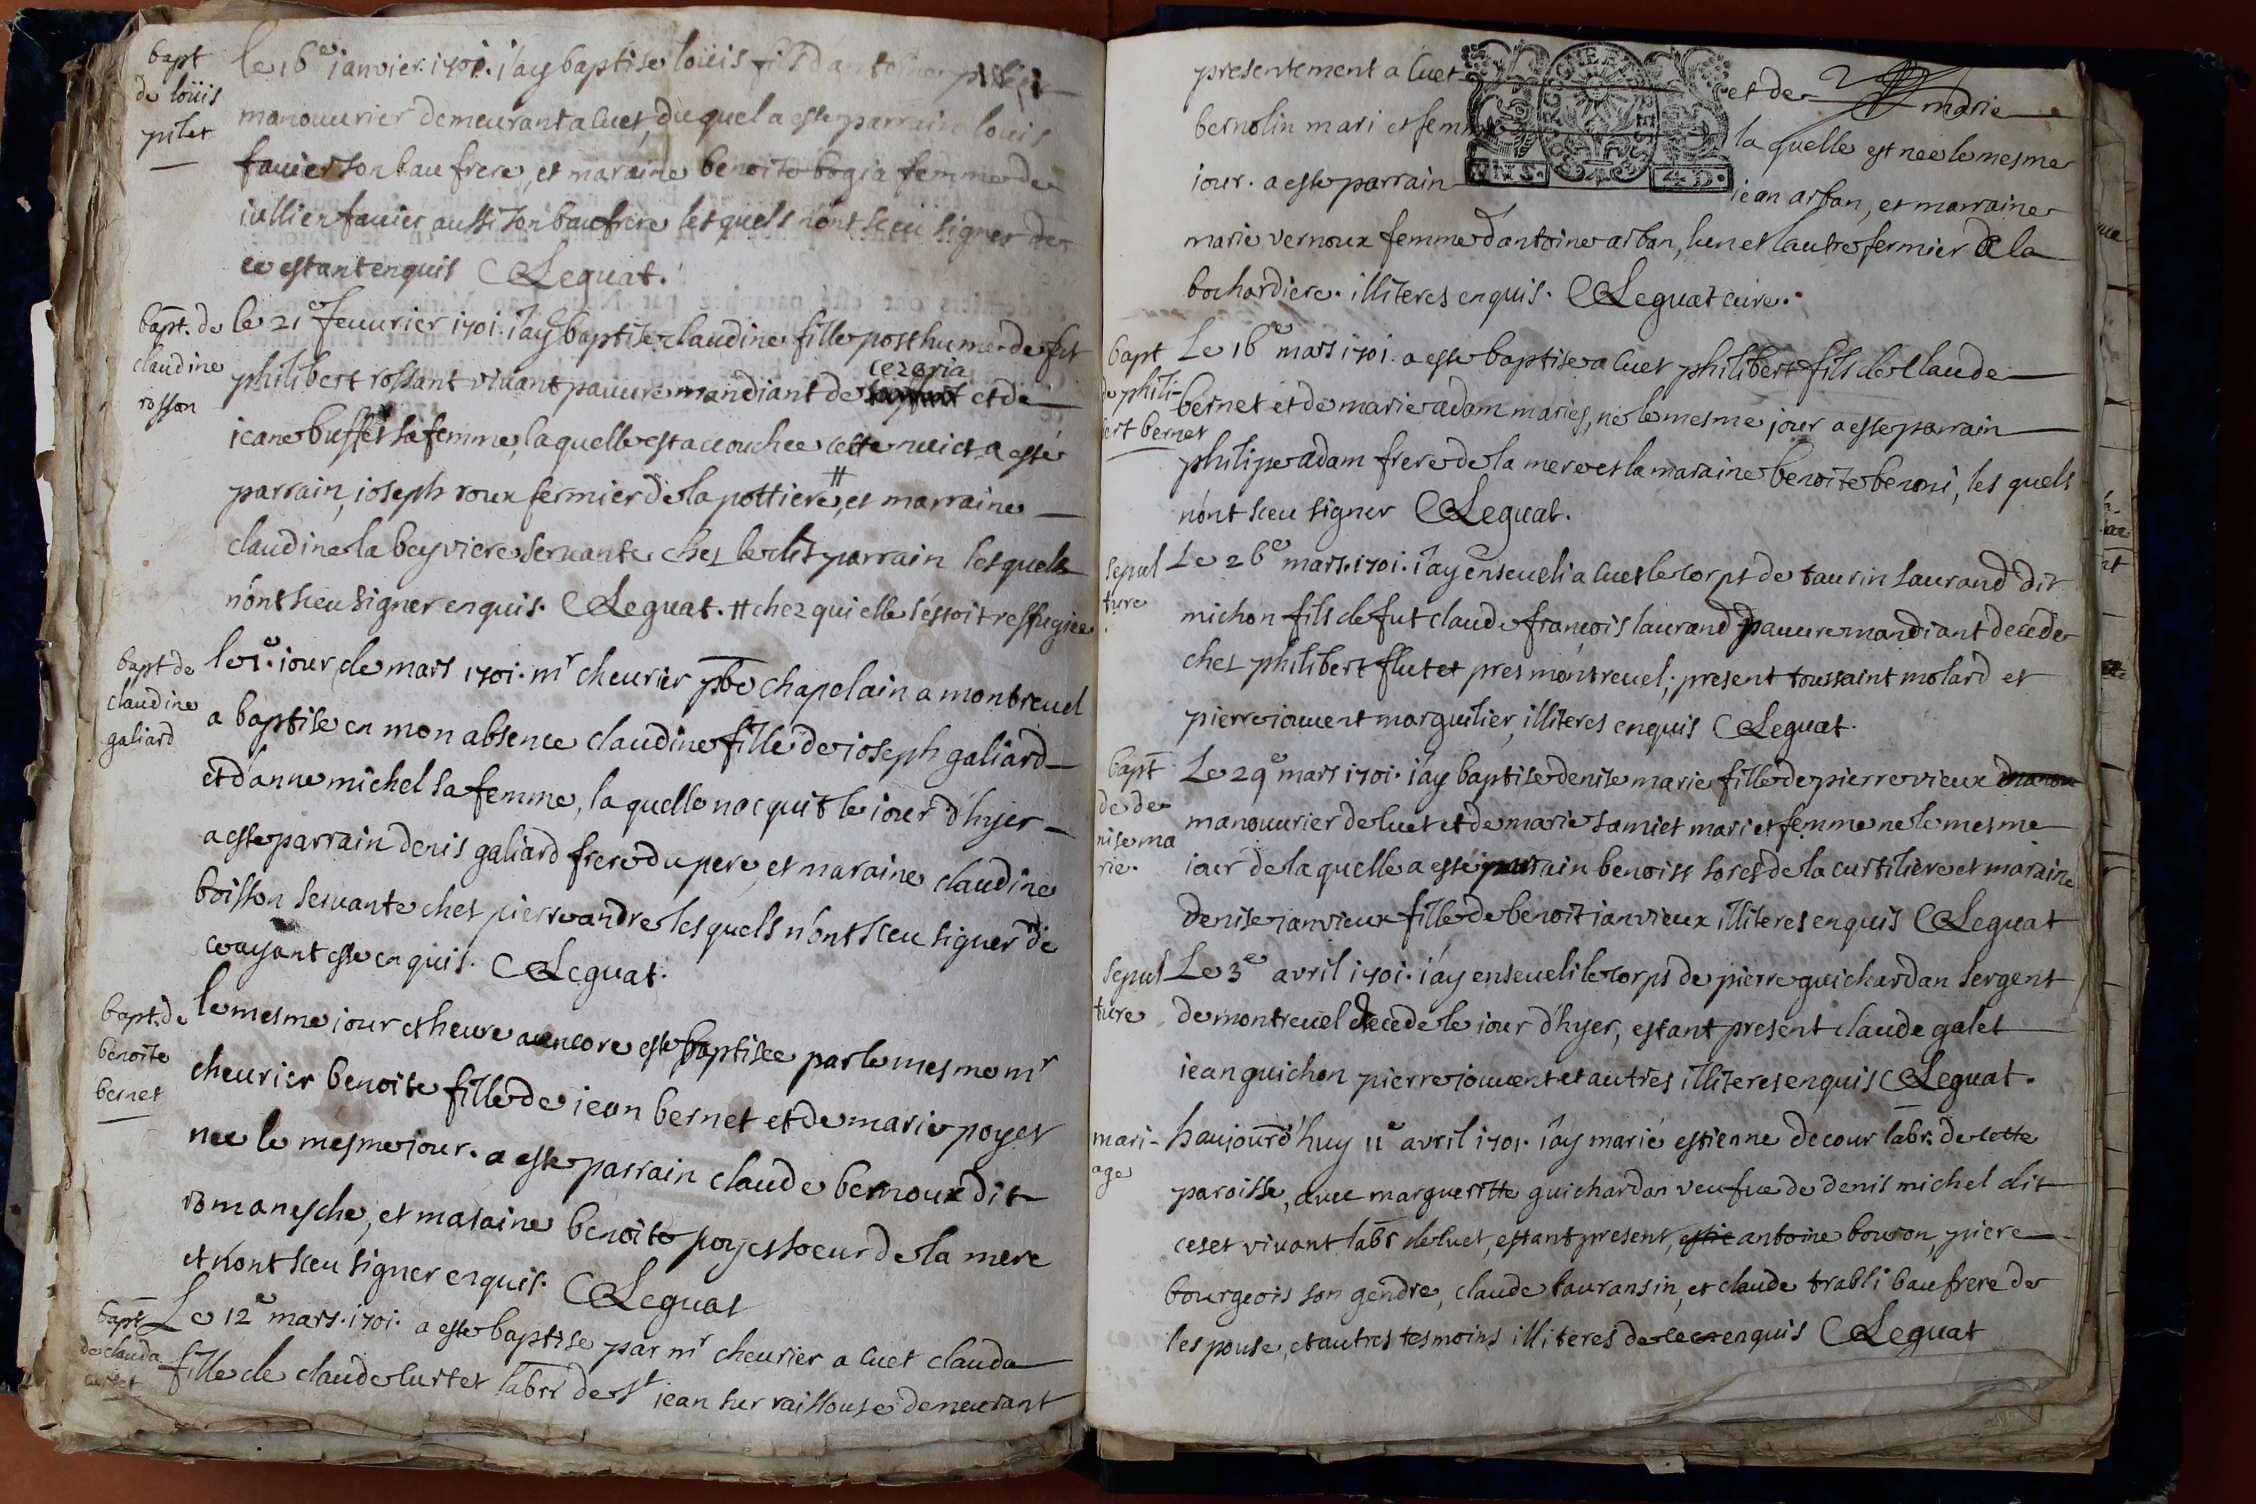 bapt
de loüis
pilet
le 16e ianvier. 1701. i'ay baptise loüis fils d'antoine pilet
manouurier demeurant a Cuet, duquel a este parrain louis
fauier son baufrere, et maraine benoite bogia femme de
iullien fauier aussi son baufrere lesquels n'ont sceu signer de
ce estant enquis CLeguat.
bapt. de
claudine
rosson
le 21e feuurier 1701. i'ay baptise claudine fille posthume de fut
philibert rossant vivant pauure mandiant de cezeria et de
ieane buffet sa femme, laquelle est accouchee cette nuict a esté
parrain, ioseph roux fermier de la pottiere, # et marraine
claudine la beyviere seruante chez le dit parrain lesquels
n'ont sceu signer enquis. CLeguat. # chez qui elle s'estoit reffugiee
bapt de
claudine
galiard
le 1e. iour de mars 1701. mr cheurier pbre chapelain a montreuel
a baptise en mon absence claudine fille de ioseph galiard
et d'anne michel sa femme, la quelle nacquit le iour d'hyer
a este parrain denis galiard frere du pere, et maraine claudine
boisson seruante chez pierre andre lesquels n'ont sceu signer de
ce ayant este enquis. CLeguat.
bapt. de
benoite
bernet
le mesme iour et heure a encore este baptisee par le mesme mr
cheurier benoite fille de iean bernet et de marie poyet
nee le mesme iour. a este parrain claude bernoux dit
romanesche, et maraine benoite poyet soeur de la mere
et n'ont sceu signer enquis. CLeguat
bapt
de clauda
curtet
Le 12e mars. 1701. a este baptise par mr cheurier a Cuet clauda
fille de claude curtet labrr de st iean sur raissouse demeurant
presentement a Cuet et de marie
bernolin mari et femme la quelle est nee le mesme
iour. a este parrain iean arban, et marraine
marie vernoux femme d'antoine arban, lun et lautre fermier de la
bochardiere. illiteres enquis. CLeguat cure.
bapt
de phili-
bert bernet
Le 16e mars 1701. a este baptise a Cuet philibert fils de Claude
bernet et de marie adam maries, né le mesme jour a este parrain
philipe adam frere de la mere et la maraine benoite benoni, les quels
n'ont sceu signer CLeguat.
sepul
ture
Le 26e mars. 1701. i'ay enseueli a Cuet le corps de taurin laurand dit
michon fils de fut claude françois laurand pauure mandiant decede
chez philibert flutet pres montreuel; present toussaint molard et
pierre iouuent marguilier, illiteres enquis CLeguat.
bapt
de de
nise ma
rie.
Le 29e mars 1701. i'ay baptise denise marie fille de pierre vieux
manouurier de Cuet et de marie samiet mari et femme ne le mesme
iour de la quelle a esté parrain benoist sores de la curtiliere et maraine
denise ianvieux fille de benoit ianvieux illiteres enquis CLeguat
sepul
ture
Le 3e avril 1701. i'ay enseueli le corps de pierre guichardan sergent
de montreuel decede le iour d'hyer, estant present claude galet
iean guichon pierre iouuent et autres illiteres enquis CLeguat.
mari-
age
haujourd'huy 11e avril 1701. i'ay marié estienne decour labr. de cette
paroisse, auec margueritte guichardan veufue de denis michel dit
ceset vivant labr de Cuet, estant present, antoine bouron, piere
bourgeois son gendre, claude tauransin, et claude trabli baufrere de
lespouse, et autres tesmoins illiteres de ce enquis CLeguat